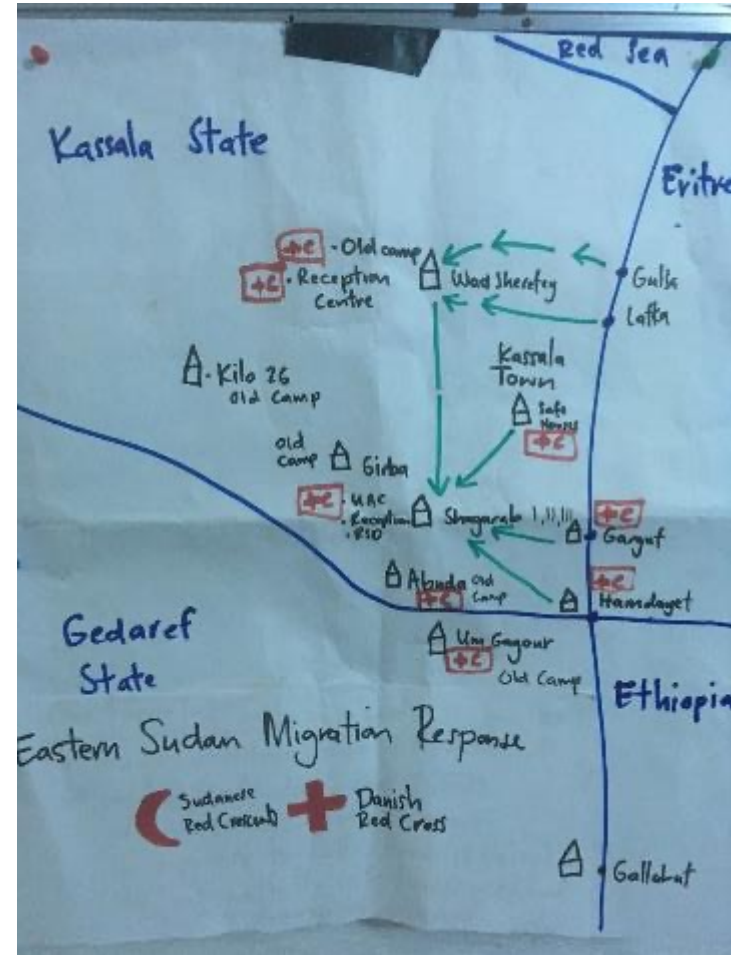 Red Sea
Kassala State
Eritre
+C - Old camp
+C - Reception
Centre
Wad Sherefey
Gulsa
Lafka
Kassala
Town
- Kilo 26
Old Camp
Safe
Houses
+C
Old
Camp
Girba
+C - UAC
- Reception
- RSD
Shagarab I,II,III
+C
Gargut
+C
Hamdayet
Abuda Old
Camp
+C
Um Gagour
+C
Old Camp
Gedaref
State
Ethiopia
Eastern Sudan Migration Response
Sudanese
Red Crescent
Danish
Red Cross
Gallabat